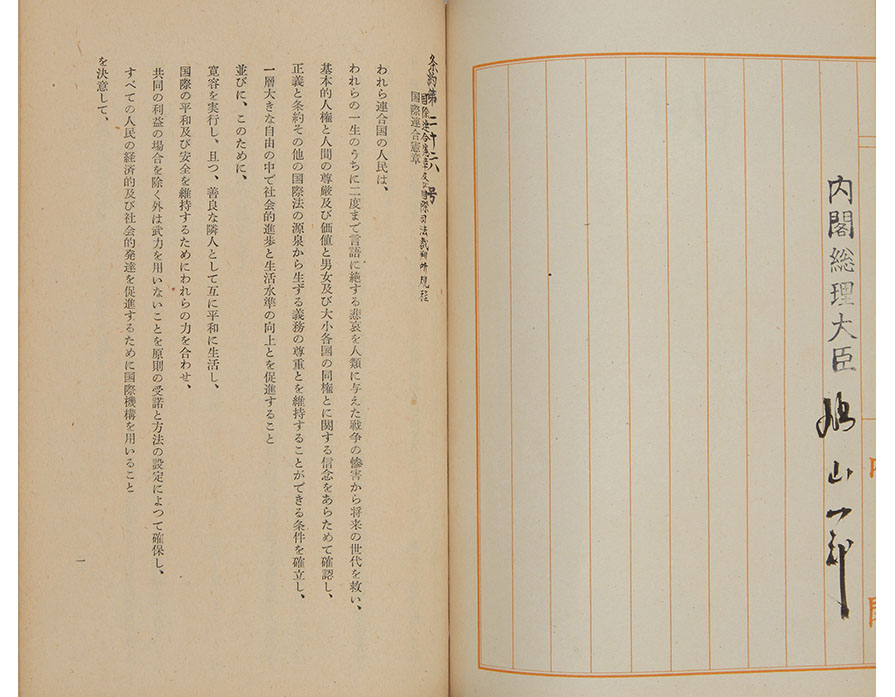 内閣総理大臣 鳩山一郎
条約第二十六号
国際連合憲章及び国際司法裁判所規程
国際連合憲章
われら連合国の人民は、
われらの一生のうちに二度まで言語に絶する悲哀を人類に与えた戦争の惨害から将来の世代を救い、
基本的人権と人間の尊厳及び価値と男女及び大小各国の同権とに関する信念をあらためて確認し、
正義と条約その他の国際法の源泉から生ずる義務の尊重とを維持することができる条件を確立し、
一層大きな自由の中で社会的進歩と生活水準の向上とを促進すること
並びに、このために、
寛容を実行し、且つ、善良な隣人として互に平和に生活し、
国際の平和及び安全を維持するためにわれらの力を合わせ、
共同の利益の場合を除く外は武力を用いないことを原則の受諾と方法の設定によつて確保し、
すべての人民の経済的及び社会的発達を促進するために国際機構を用いること
を決意して、
一